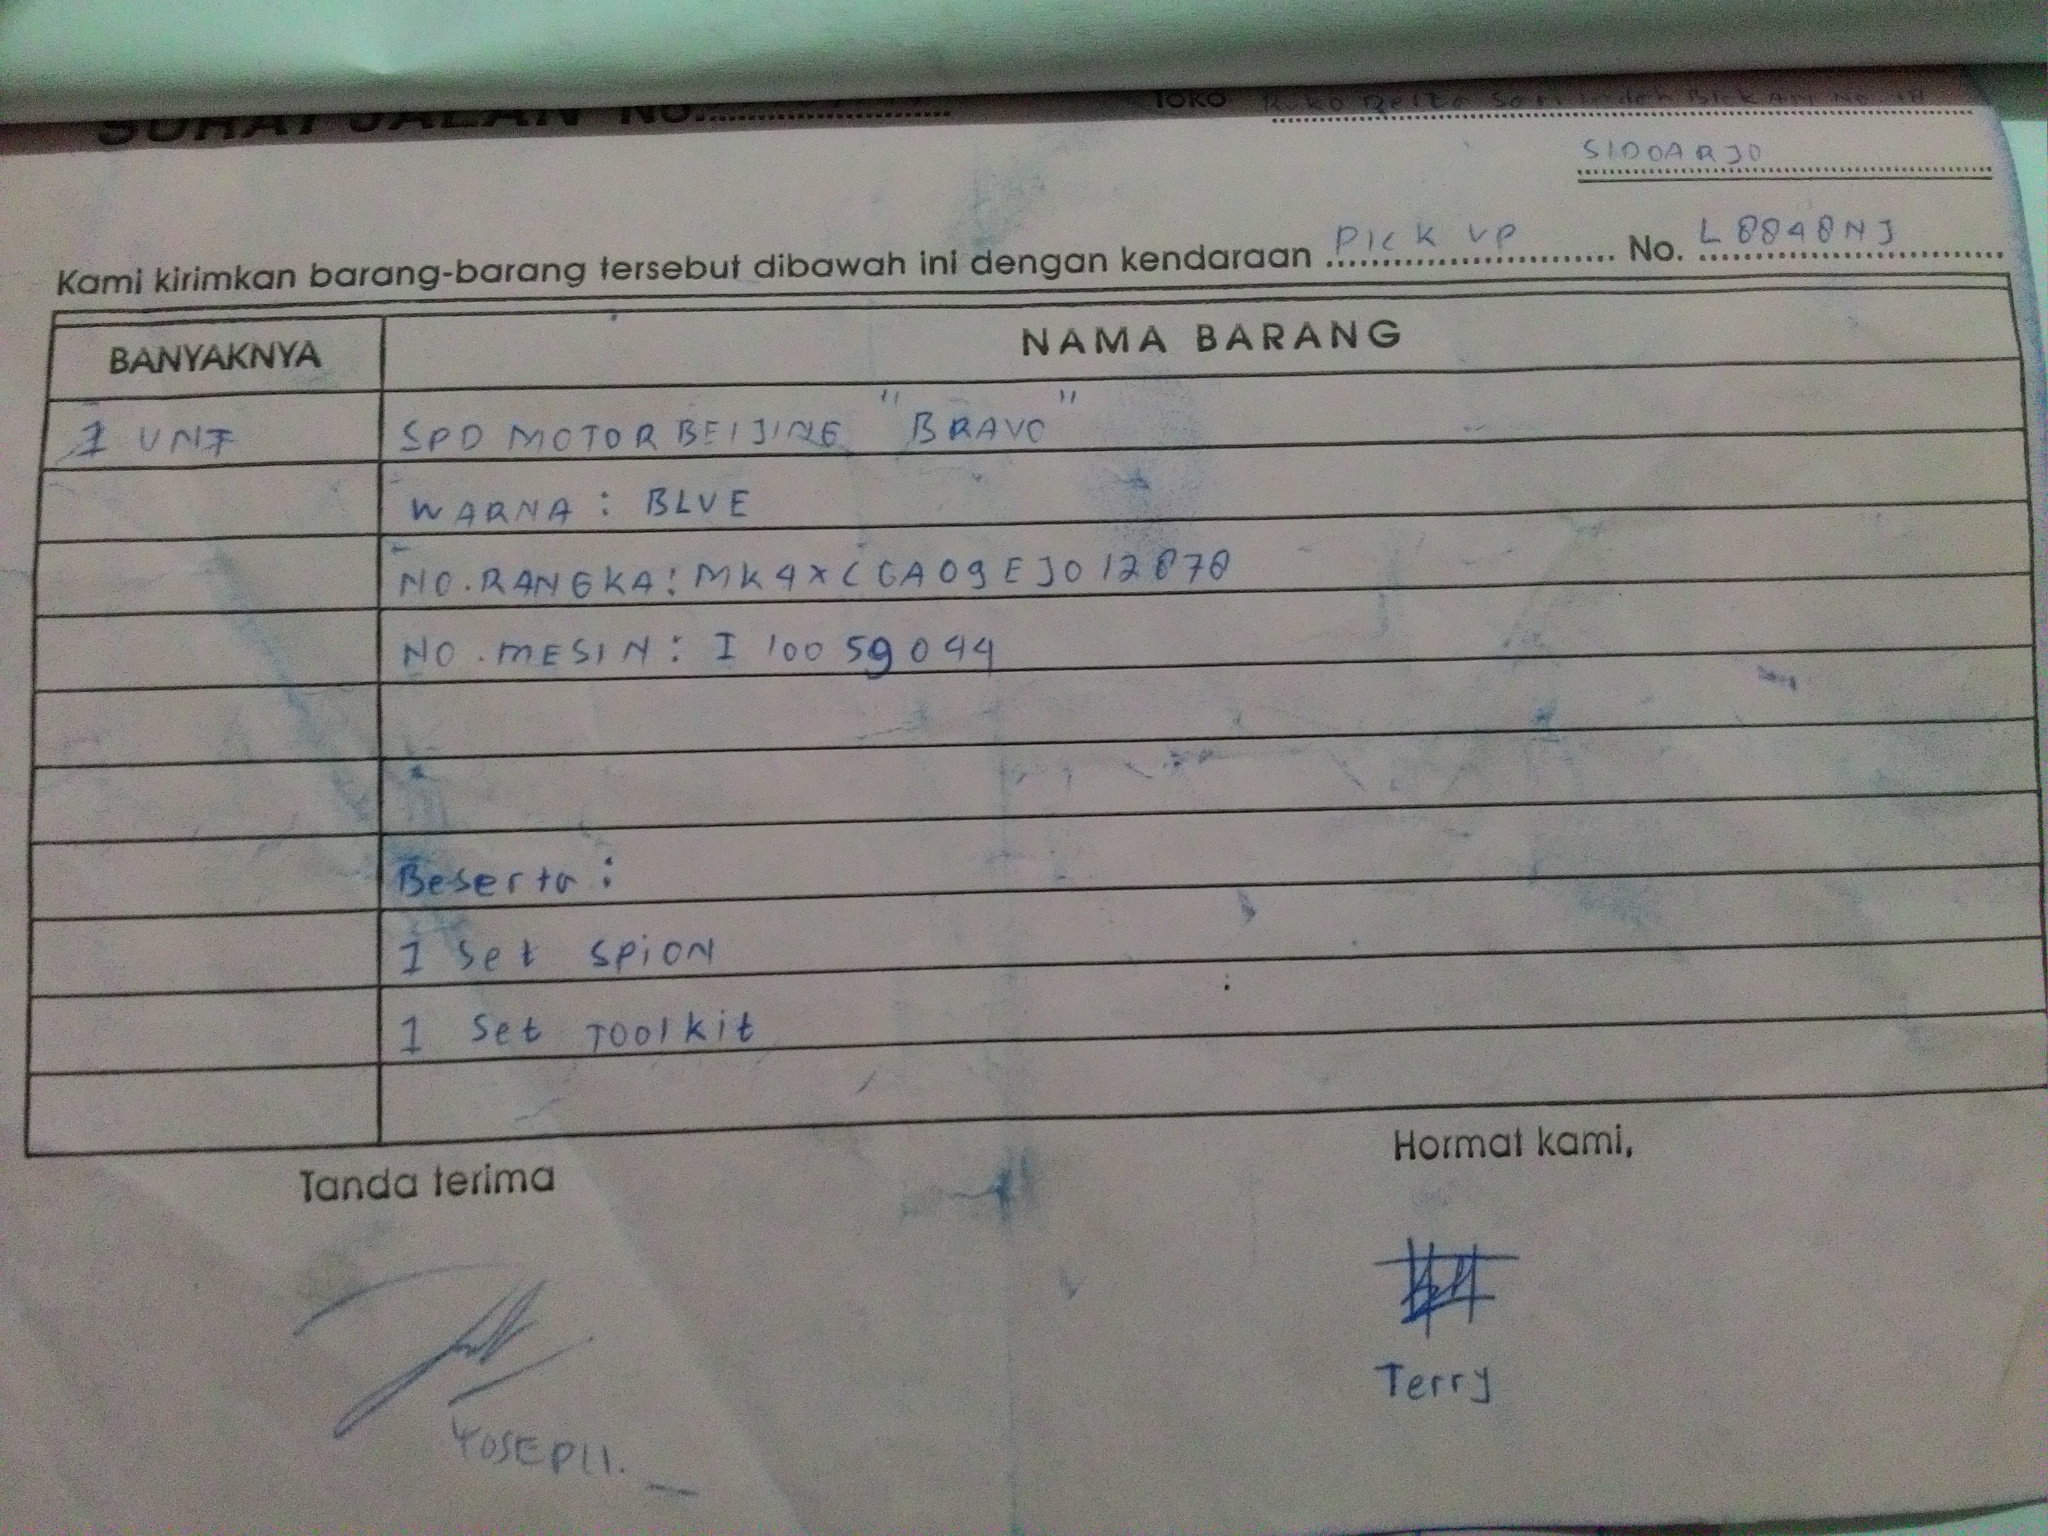 SURAT JALAN No.
Toko Ruko Delta Sari Indah Blok AN No 10
SIDOARJO
Kami kirimkan barang-barang tersebut dibawah ini dengan kendaraan PICK UP No. L 8848 NJ
BANYAKNYA NAMA BARANG
1 UNT SPD MOTOR BEIJING "BRAVO"
WARNA : BLUE
NO.RANGKA : MK4XCGA09EJ012878
NO.MESIN : I 10059044
Beserta :
1 Set SPiON
1 Set TOOlkit
Tanda terima Hormat kami,
YOSEPH. Terry